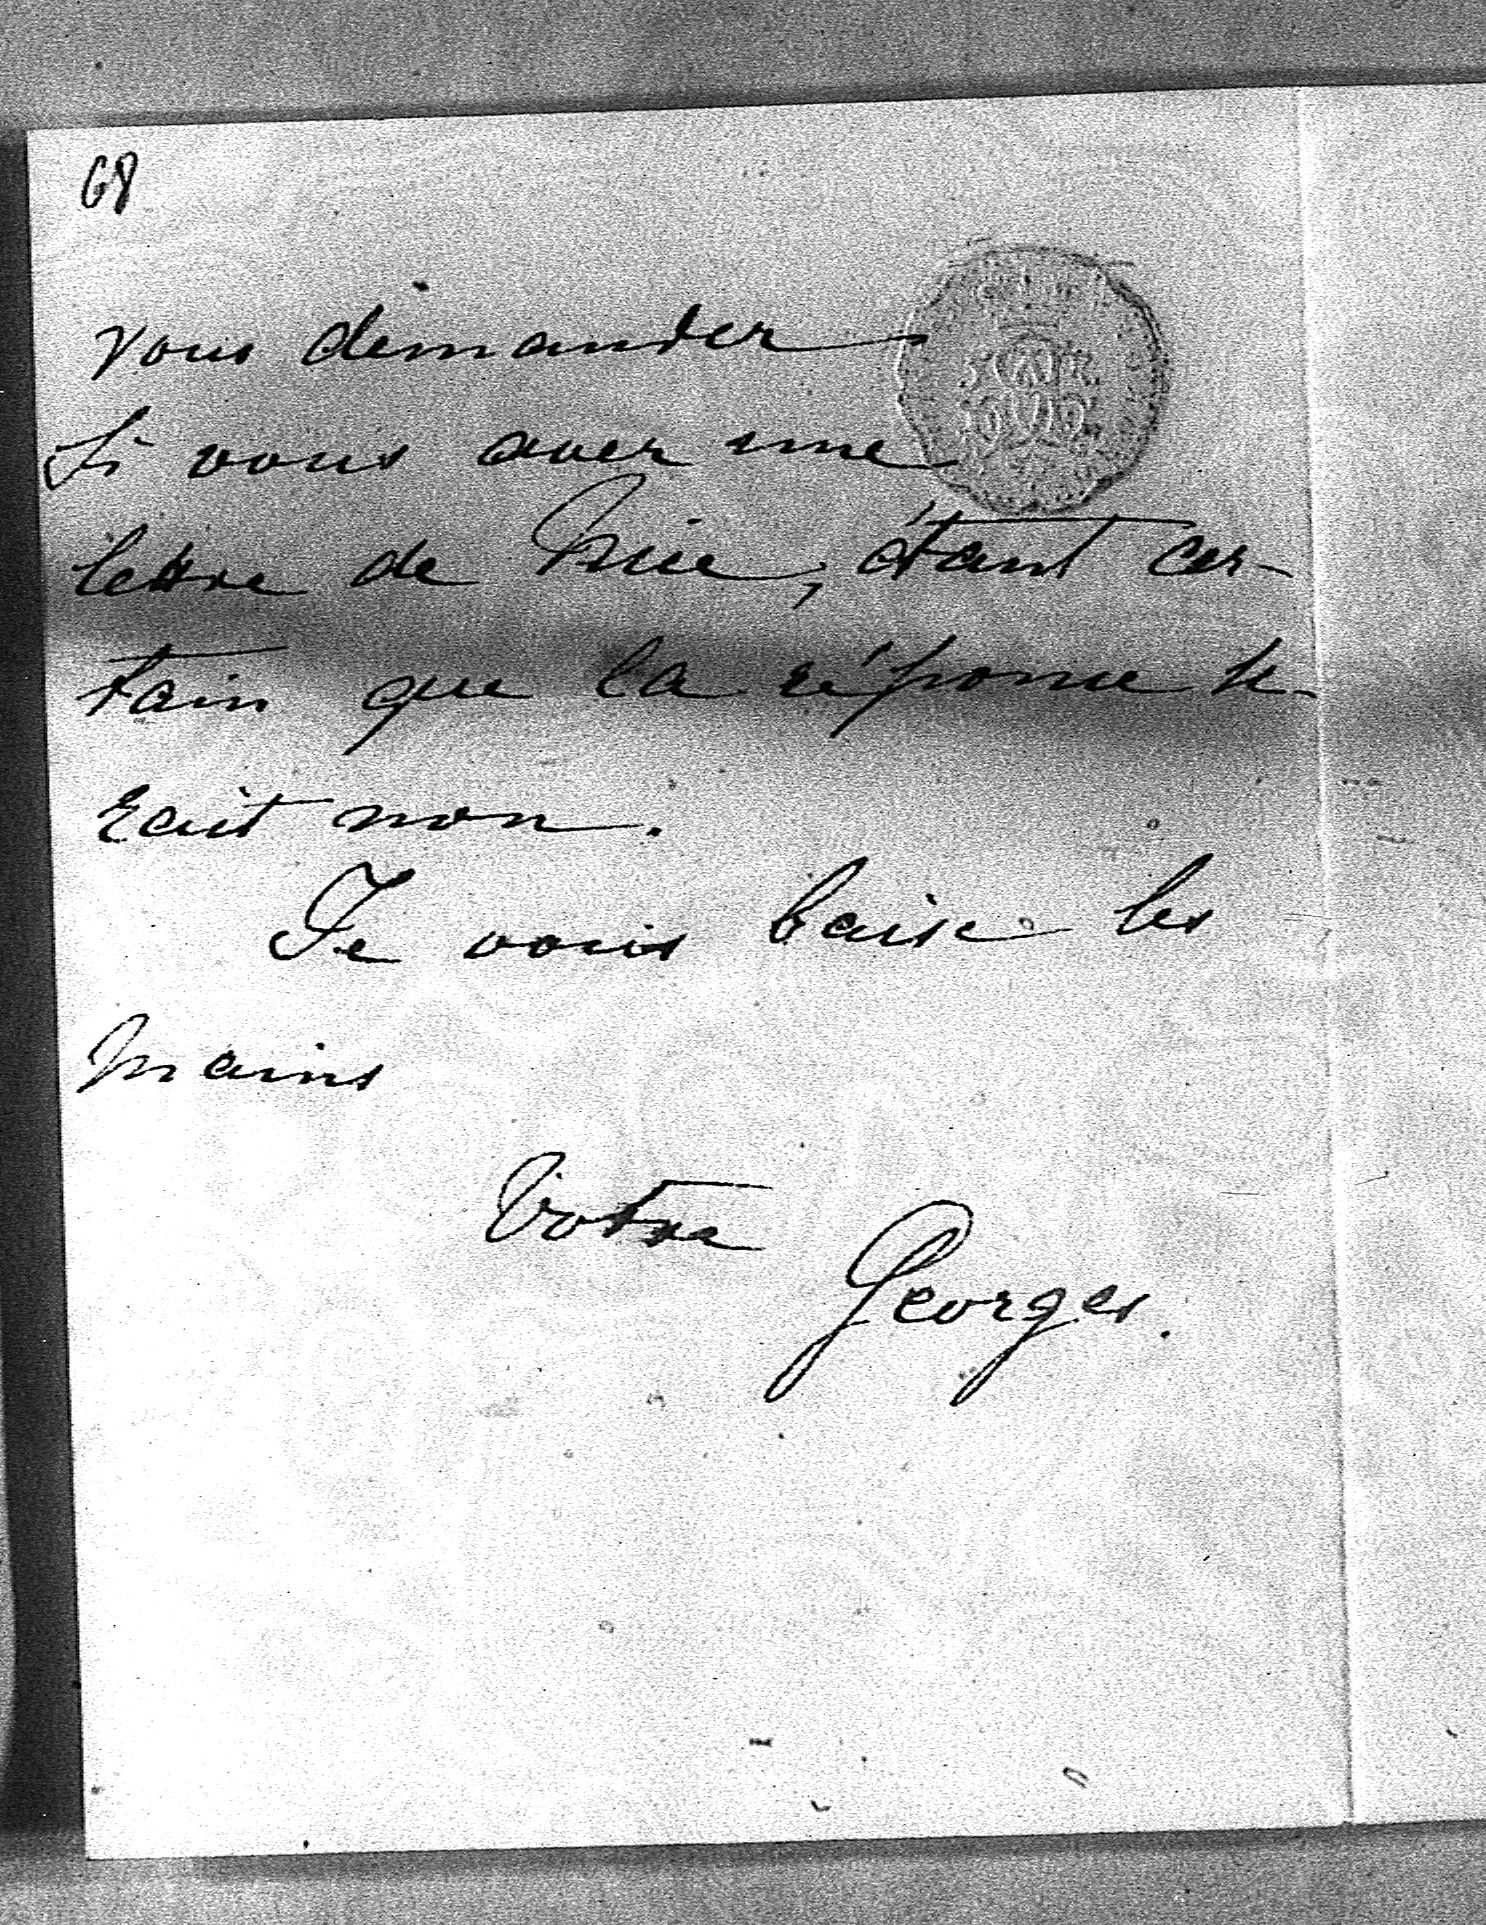 68
vous demander
si vous avez une
lettre de Nice, étant cer-
tain que la réponse se-
rait non.
Je vous baise les
mains
Votre
Georges.